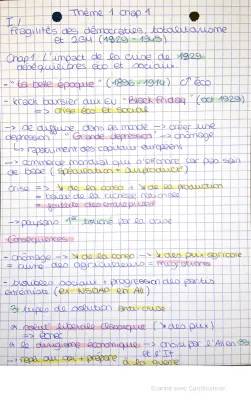 Thème 1 chap 1
I/
Fragilités des démocraties, totalitarisme
et 2GM (1929 - 1945)
Chap1 L'impact de la crise de 1929
déséquilibres éco et sociaux
- "la belle époque" (1896-1914) éco
- krach boursier aux EU "Black Friday" (oct 1929)
=> crise éco et sociale
-> se diffuse dans le monde -> créer une
dépression "Grande dépression" + chômage
↳ rapatriement des capitaux européens
-> commerce mondial qui s'effondre car pays sain
de base (spéculation + surproduction)
crise => ↘ de la conso + ↘ de la production
= baisse de la richesse nationale
= faillite des entreprises
-> paysans 1er touché par la crise
Conséquences
- chômage -> ↘ de la conso -> ↘ des prix agricole
= ruine des agriculteurs = migrations
- troubles sociaux + progression des partis
extrémiste (ex NSDAP en All)
3 types de solution anti-crise
a solution libérale classique (↘ des prix)
=> échec
a le dirigisme économique -> choisi par l'All en 33
et l'It
-> repli sur soi + prépare à la guerre
Scanned with CamScanner